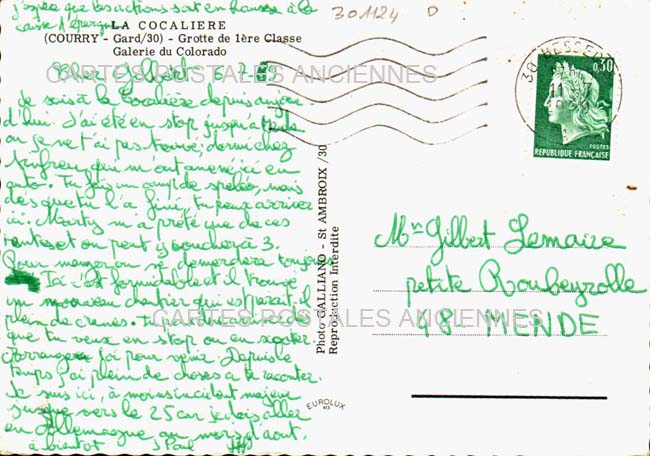 j'espère que les actions sont en hausse à la
caisse d'épargne
LA COCALIERE
(COURRY - Gard/30) - Grotte de 1ère Classe
Galerie du Colorado
301124 D
CARTES POSTALES ANCIENNES
Cher Gilbert
Je suis à la Cocalière depuis aujour
d'hui. J'ai été en stop jusqu'à Mende
où je ne t'ai pas trouvé; dormi chez
qui m'ont amené ici en
auto. Tu fais un camp de spéléo, mais
dès que tu l'a fini tu peux arriver
ici. Marty m'a prêté une de ces
tentes et on peut y coucher à 3.
Pour manger on se demerdera toujours
Ici c'est formidable et il
un nouveau chantier qui est parait il
plein de
que tu veux en stop ou en scooter
Arrange toi pour venir. Depuis le
temps j'ai plein de choses à te raconter.
Je suis ici, à moins
jusque vers le 25 car je dois aller
en Allemagne au mois d'août.
à bientôt Paul
Photo GALLIANO - St AMBROIX /30
Reproduction Interdite
EUROLUX
30 BESSEGES
11
0,30
POSTES
REPUBLIQUE FRANÇAISE
Mr Gilbert Lemaire
petite Roubeyrolle
48 - MENDE
CARTES POSTALES ANCIENNES